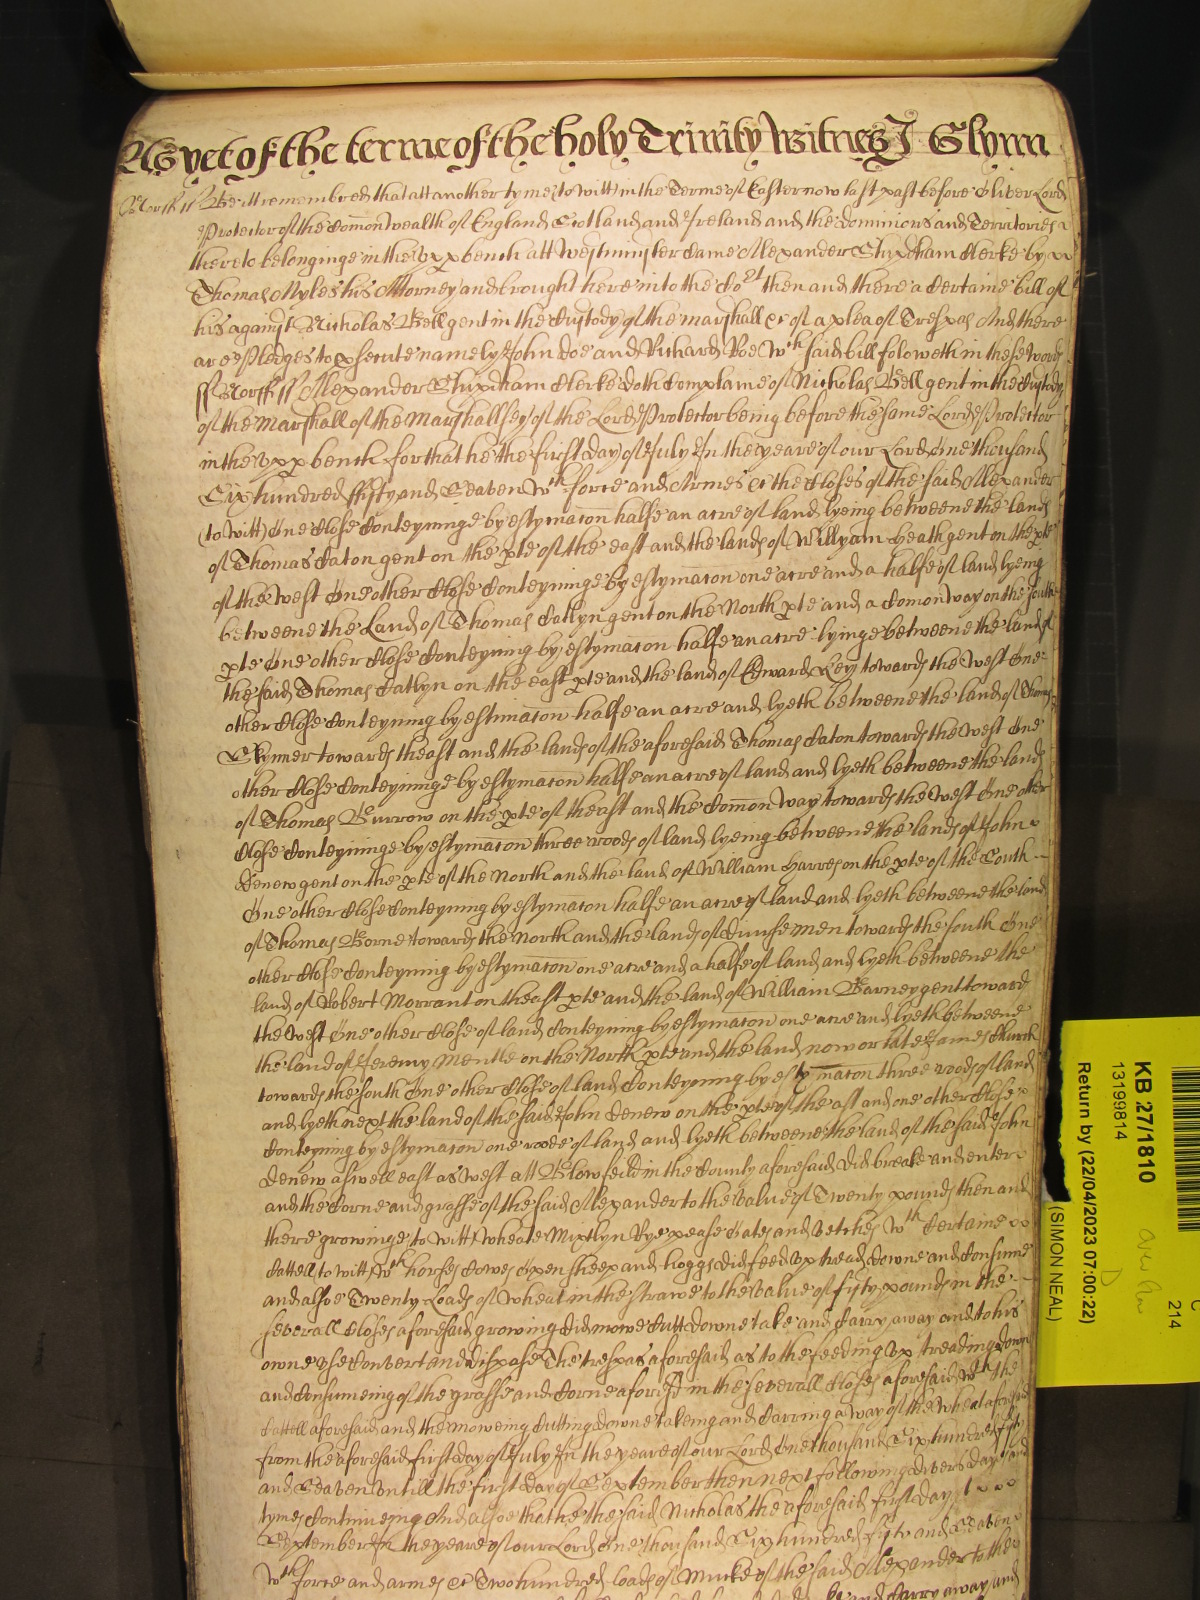 As yet of the terme of the holy Trinity Witnes J Glynn
Norff ss Be itt remembred that att another tyme to witt in the Terme of Easter now last past before Oliver Lord
Protector of the Com̄onwealth of England Scotland and Ireland and the dominions and Territories
thereto belonginge in the upp bench att Westminster Came Alexander Shipdham Clerke by
Thomas Myles his Attorney and brought here into the Cort then and there a Certaine bill of
his against Nicholas Bell gent in the Custody of the marshall &c of a plea of Trespas And there
are Pledges to psecute namely John doe and Richard Roe wch said bill foloweth in these words
ss Norff ss Alexander Shipdham Clerke doth Complaine of Nicholas Bell gent in the Custody
of the Marshall of the Marshallsey of the Lord Protector being before the same Lord Protector
in the upp bench for that he the first day of July In the yeare of our Lord One thousand
Six hundred fifty and Seaven wth force and Armes &c the Closes of the said Alexander
(to witt) One Close Conteyninge by estymac̄on halfe an acre of land lyeing betweene the land
of Thomas Caton gent on the pte of the east and the lands of Willyam Heath gent on the pte
of the West One other Close Conteyninge by estymac̄on one acre and a halfe of land lyeing
betweene the Land of Thomas Catlyn gent on the North pte and a Com̄on way on the South
pte One other Close Conteyning by estymac̄on halfe an acre lyinge betweene the land of
the said Thomas Catlyn on the east pte and the land of Edward Key towards the West One
other Close Conteyning by estimac̄on halfe an acre and lyeth betweene the land of Thomas
Skynner towards theast and the lands of the aforesaid Thomas Caton towards the West One
other Close Conteyninge by estymac̄on halfe an acre of land and lyeth betweene the land
of Thomas Burrow on the pte of theast and the Com̄on way towards the West One other
Close Conteyninge by estymac̄on three roods of land lyeing betweene the lands of John
Denew gent on the pte of the North and the land of William Harres on the pte of the South
One other Close Conteyning by estymac̄on halfe an acre of land and lyeth betweene the land
of Thomas Borne towards the North and the lands of Townsemen towards the South One
other Close Conteyning by estymac̄on one acre and a halfe of land and lyeth betweene the
land of Robert Morrant on theast pte and the land of William Barney gent toward
the West One other Close of land Conteyning by estymac̄on one acre and lyeth betweene
the land of Jeremy Mentle on the North pte and the land now or late James Church
towards the South One other Close of land Conteyning by estymac̄on three roods of land
and lyeth next the land of the said John Denew on the pte of the ast and one other Close
Conteyning by estymac̄on one roode of land and lyeth betweene the land of the said John
Denew aswell east as West att Blowfeild in the County aforesaid did breake and enter
and the Corne and grasse of the said Alexander to the value of Twenty pounds then and
there growinge to witt wheate Mixtlyn Rye pease Oates and vetches wth Certaine
Cattell to witt wth horses Cowes Oxen sheep and hoggs did feed up tread downe and Consume
and alsoe Twenty Loads of Wheat in the strawe to the value of fifty pounds in the
severall Closes aforesaid growing did mowe Cutt downe take and Carry away and to his
owne use Convert and dispose The trespas aforesaid as to the feeding up treading down
and Consumeing of the grasse and Corne aforesd in the severall Closes aforesaid wth the
Cattell aforesaid and the moweing Cutting downe takeing and Carring away of the wheat aforesaid
from the aforesaid first day of July In the yeare of our Lord One thousand Six hundred fifty
and Seaven untill the first day of September then next following divers days and
tymes Continueing And alsoe that he the said Nicholas the aforesaid first day of
September In the yeare of our Lord One thousand Six hundred fifty and Seaven
wth force and armes &c Two hundred loads of Mucke of the said Alexander to the
and Carry away and
KB 27/1810
13199814
Return by (22/04/2023 07:00:22)
(SIMON NEAL)
214